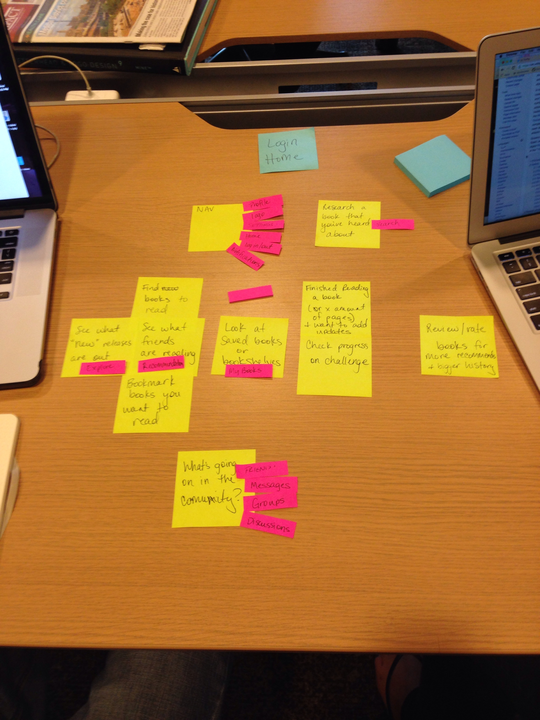 Login
Home
NAV
Research a
book that
you've heard
about
Search
Find new
books to
read
See what
"New" releases
are out
Explore
See what
friends
are reading
Bookmark
books you
want to
read
Look at
saved books
or
bookshelves
My Books
Finished Reading
a book
(or x amount
of pages)
+ want to add
updates
Check progress
on challenge
Review/rate
books for
more
+ bigger history
What's going
on in the
community?
Messages
Groups
Discussions